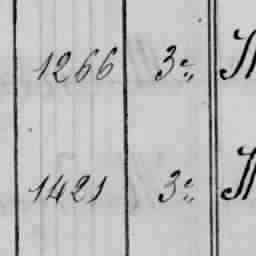 1266 3:,
1421 3:,